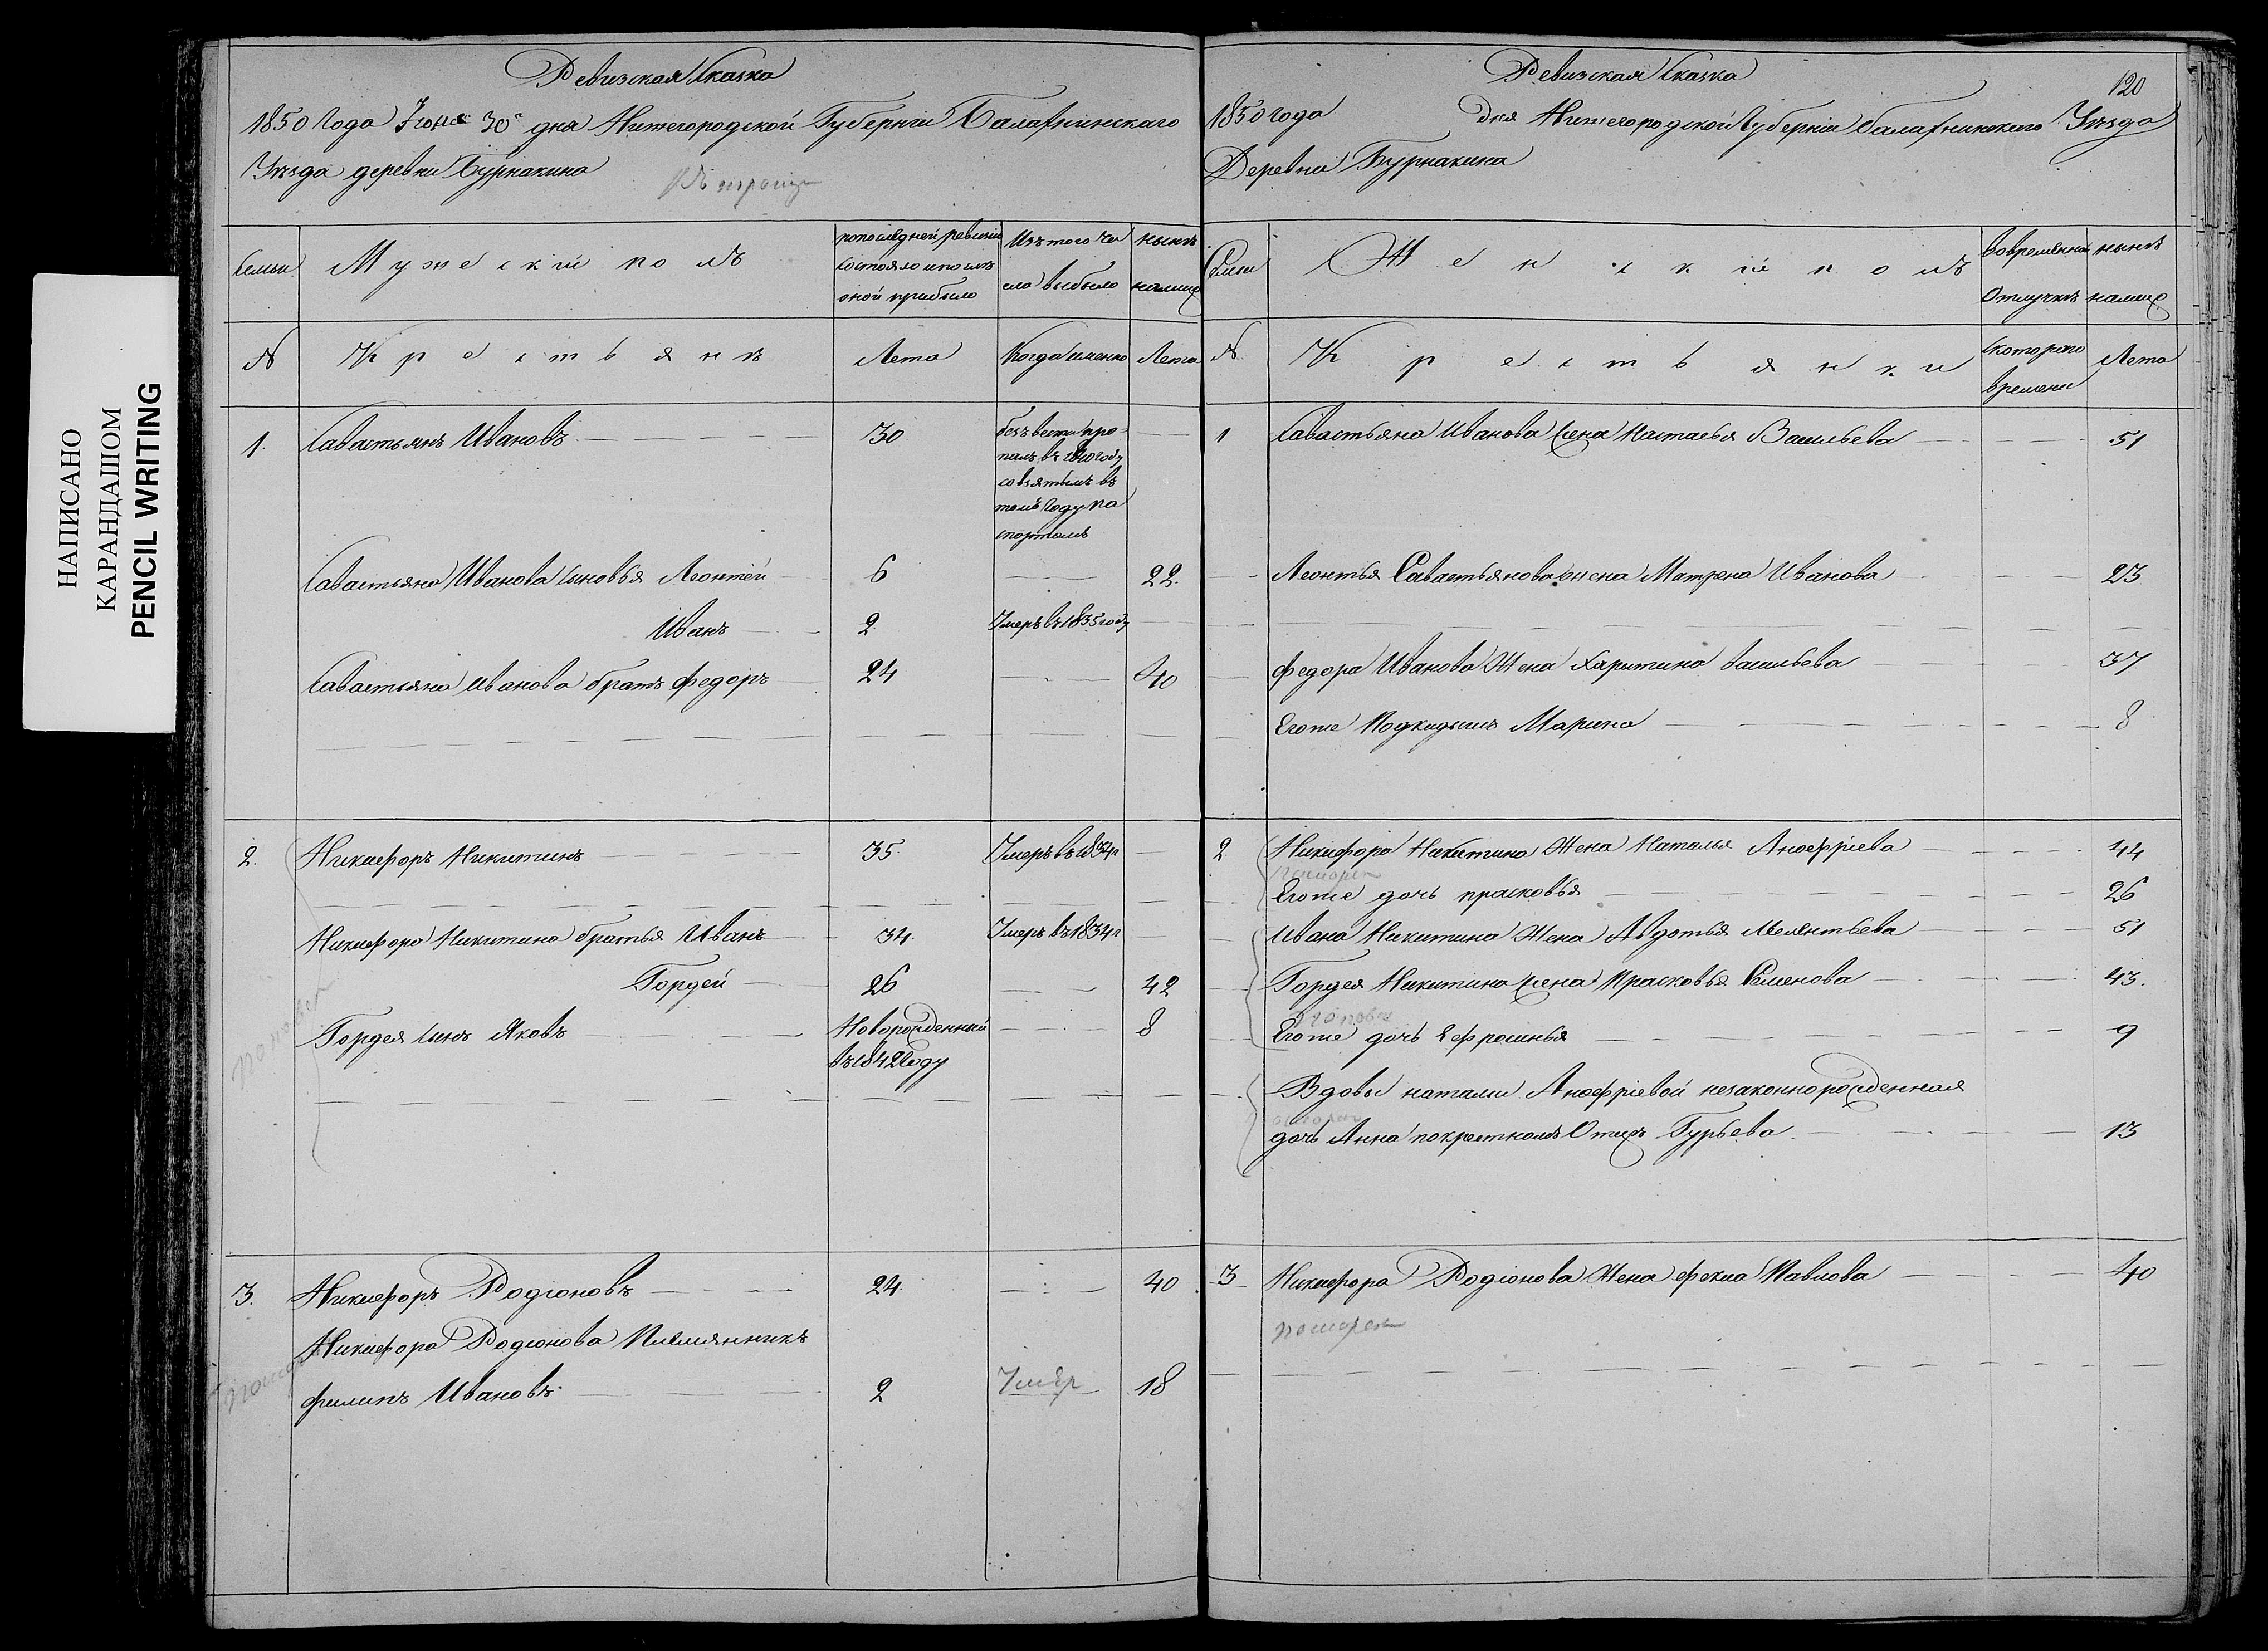 НАПИСАНО
КАРАНДАШОМ
PENCIL WRITING
Ревизская Сказка
1850 Года Июня 30 дня Нижегородской Губернии Балахнинскаго
Уезда деревни Бурнакина
Семьи
Мужеский полъ
по последней ревизии
состояло и после
оной прибыло
Изъ того чи
сла выбыло
ныне
налицо
№
Крестьянъ
Лета
Когда именно
Лета
1.
Савастьянъ Ивановъ
30
безъ вести про-
палъ въ 1840 году
со взятымъ въ
томъ Году па
спортомъ
Савастьяна Иванова сыновья Леонтей
6
22.
Иванъ
2
Умеръ въ 1835 году
Савастьяна Иванова братъ федоръ
24
40
2.
Никифоръ Никитинъ
35.
Умеръ въ 1834 г
Никифора Никитина братья Иванъ
34.
Умеръ въ 1834 г
Гордей
26
42
Гордея сынъ Яковъ
Новорожденный
въ 1842 Году
8
3.
Никифоръ Родіоновъ
24.
40
Никифора Родіонова Племянникъ
филипъ Ивановъ
2
Умер
18
Ревизская Сказка
120
1850 года дня Нижегородской Губерніи балахнинскаго Уезда
Деревни Бурнакина
Семьи
Женскій полъ
Во временной
Отлучке
ныне
налицо
№
Крестьянки
с котораго
времени
Лета
1
Савастьяна Иванова Жена Настасья Васильева
51
Леонтья Савастьянова жена Матрена Иванова
23.
федора Иванова Жена Харитина васильева
37
Егоже Подкидышъ Марина
8
2
Никифора Никитина Жена Наталья Аноефріева
44
Егоже дочь прасковья
26
Ивана Никитина Жена Авдотья Мелентьева
51
Гордея Никитина Жена Прасковья Семенова
43.
Егоже дочь Ефросинья
9
Вдовы натальи Аноефріевой незаконнорожденная
дочь Анна по крестномъ Отце Гурьева
13
3
Никифора Родіонова Жена фекла Павлова
40